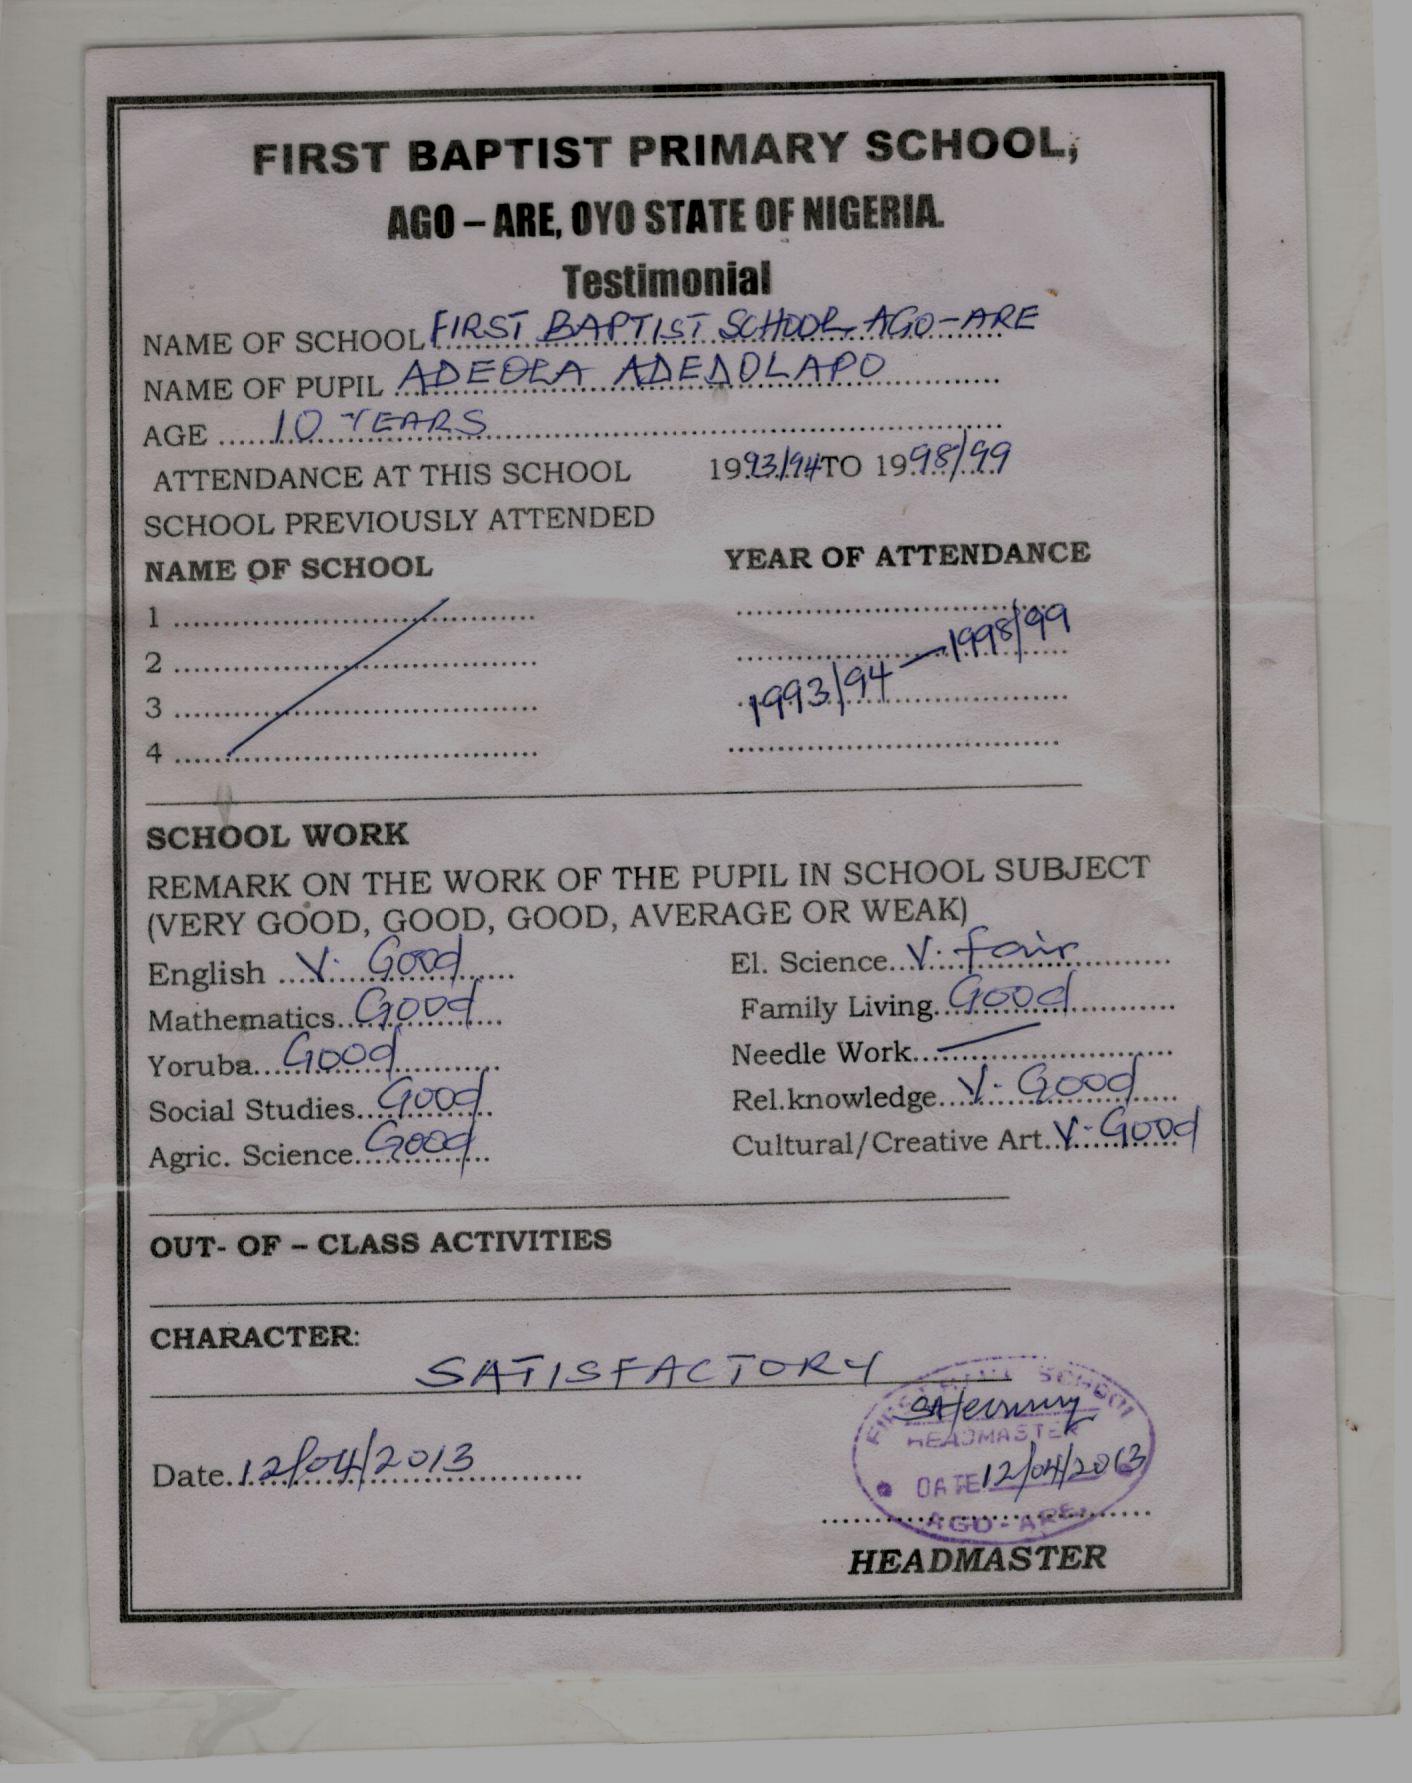 FIRST BAPTIST PRIMARY SCHOOL,
AGO – ARE, OYO STATE OF NIGERIA.
Testimonial
NAME OF SCHOOL FIRST BAPTIST SCHOOL, AGO-ARE
NAME OF PUPIL ADEOLA ADEDOLAPO
AGE 10 YEARS
ATTENDANCE AT THIS SCHOOL 1993/94 TO 1998/99
SCHOOL PREVIOUSLY ATTENDED
NAME OF SCHOOL YEAR OF ATTENDANCE
1
2
3
4
1993/94 — 1998/99
SCHOOL WORK
REMARK ON THE WORK OF THE PUPIL IN SCHOOL SUBJECT
(VERY GOOD, GOOD, GOOD, AVERAGE OR WEAK)
English V. Good El. Science V. fair
Mathematics Good Family Living Good
Yoruba Good Needle Work —
Social Studies Good Rel.knowledge V. Good
Agric. Science Good Cultural/Creative Art V. Good
OUT- OF – CLASS ACTIVITIES
CHARACTER:
SATISFACTORY
FIRST BAPT SCHOOL
HEADMASTER
Date 12/04/2013 DATE 12/04/2013
AGO-ARE
HEADMASTER